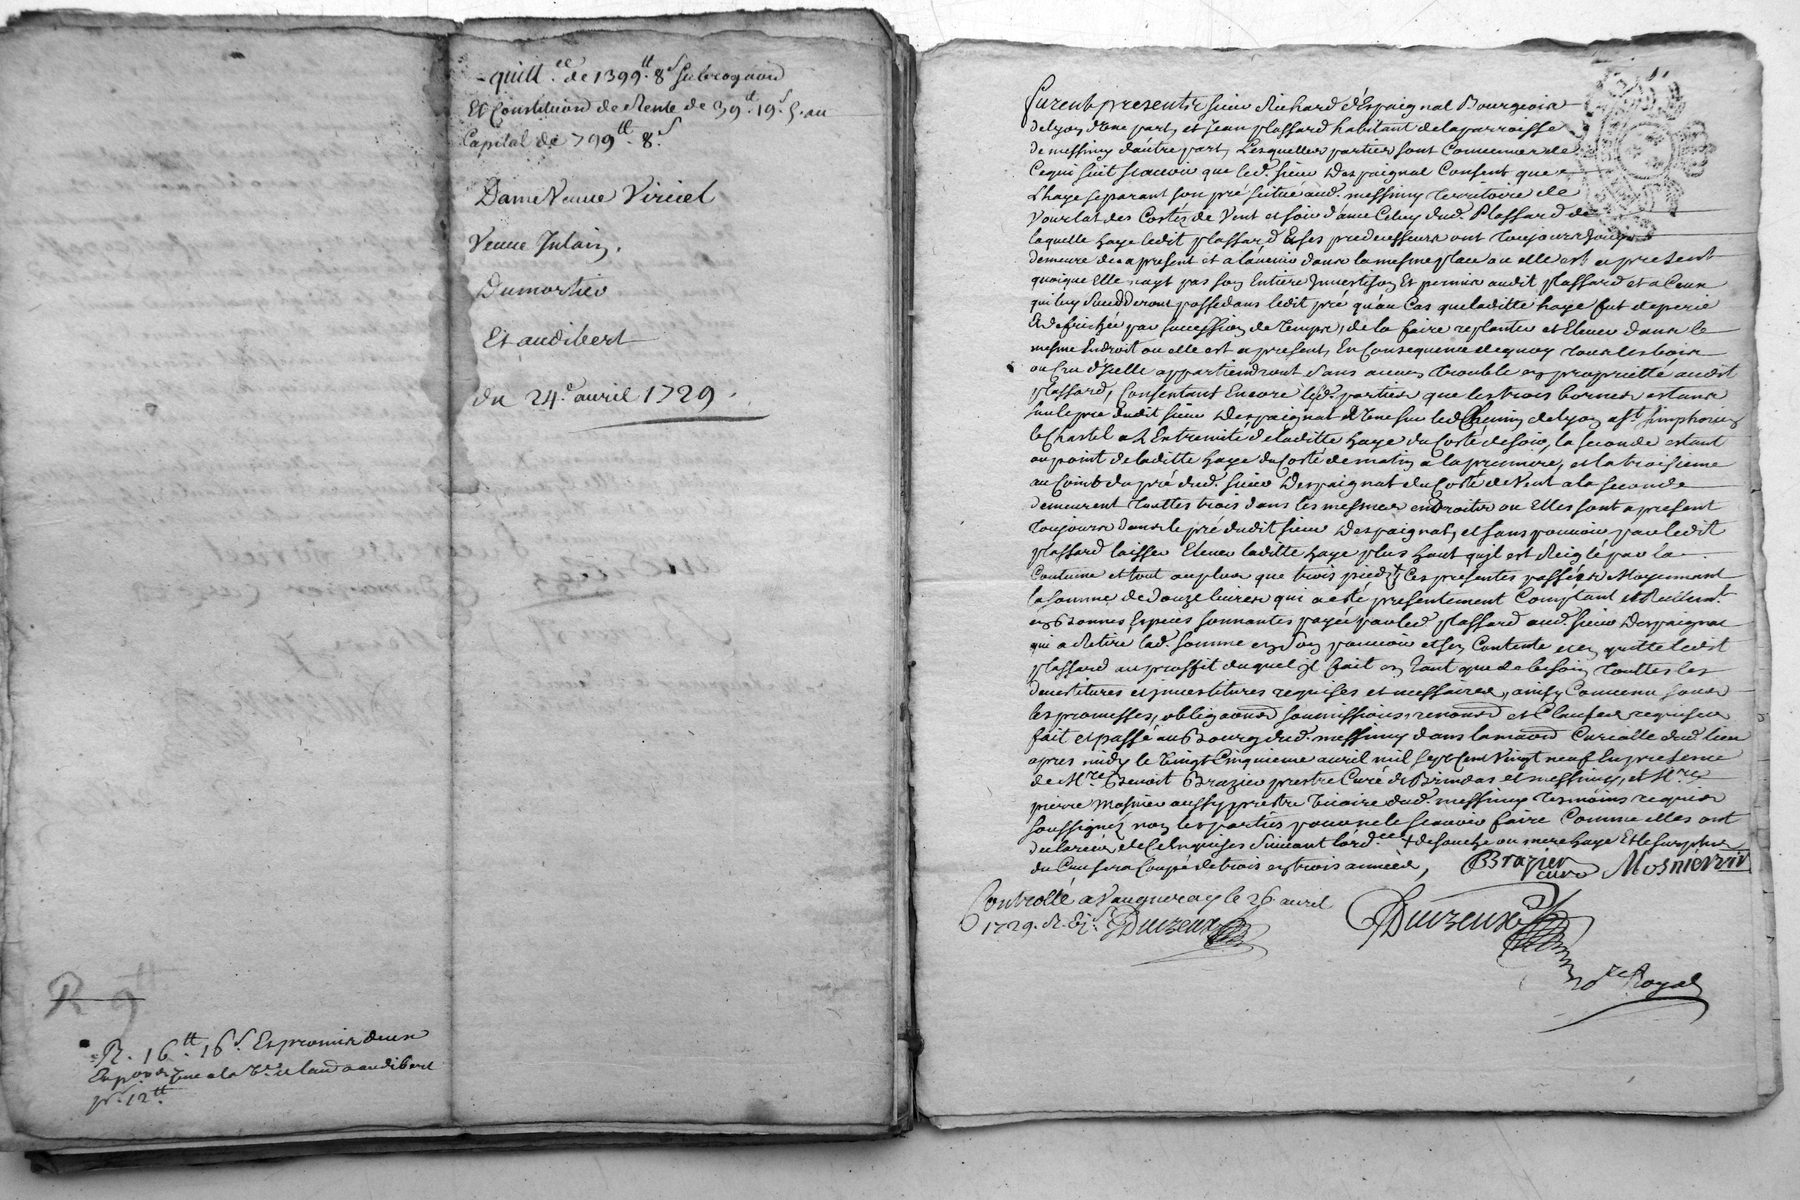 quitt.ce de 1399tt. 8s subrogaond
Et Constitution de Rente de 39tt. 19s. 5. au
Capital de 799tt. 8s
Dame Veuve Viriel
Veuve Julain,
Dumortier
Et audibert
du 24e avril 1729.
R 9tt
R. 16tt. 16s. Et promis deux
Exp.ons Une a la Ve. et laud. a audibert
pr. 12tt
furent presents sieur Richard d'Espaignat Bourgeois
de lyon d'Une part, et Jean plassard habitant de la parroisse
de messimy d'autre part, Lesquelles parties sont Convenues de
Ce qui suit scavoir que led. sieur Despaignat Consent que
L'haye separant son pré situé aud. messimy Territoire de
Vourlat des Costés de Vent et soir d'avec Celuy dud. Plassard de
laquelle haye ledit plassard Et ses predecesseurs ont Toujours Jouy
demeure des a present et a l'avenir dans la mesme place ou elle est a present
quoique Elle n'ayt pas son Entiere Investison Et permis audit plassard et a Ceux
qui luy succedderont possedans ledit pré qu'au Cas que laditte haye fut deperie
Et defrichée par succession de Temps, de la faire replanter et Elever dans le
mesme Endroit ou elle est a present, En Consequence de quoy Tous les bois
ou Cru d'Icelle appartiendront sans aucun Trouble en proprietté audit
plassard, Consentant Encore lesd. parties que les trois bornes estans
sur le pré dudit sieur Despaignat L'Une sur le Chemin de Lyon a St. simphorien
le Chastel a L'Extremité de laditte haye du Costé de soir, la seconde estant
au point de laditte haye du Costé de matin a la premiere, et la troisieme
au Coint du pré dud. sieur Despaignat du Costé de Vent a la seconde
demeurent Touttes trois dans les mesmes endroits ou Elles sont a present
Toujours dans le pré dudit sieur Despaignat, et sans pouvoir par ledit
plassard laisser Elever laditte haye plus haut qu'il est Reiglé par la
Coutume et tout au plus que trois pieds + Ces presentes passées Moyennant
la somme de douze livres qui a esté presentement Comptant et Reellemt.
en Bonnes Espices sonnantes payée par led. plassard aud. sieur Despaignat
qui a Retiré lad. somme en son pouvoir et s'en Contente et en quitte ledit
plassard au proffit duquel Il fait en Tant que de besoin Touttes les
devestitures et investitures requises et necessaires, ainsy Convenu sous
les promesses, obligaons soumissions, renonons et Clauses requises
fait et passé au Bourg dud. messimy dans la maison Curialle dud. lieu
apres midy le Vingt Cinquieme avril mil sept Cent Vingt neuf En presence
de Mre. Benoit Brazier prestre Curé de Brindas et messimy, et Mre.
pierre Mosnier aussy prestre Vicaire dud. messimy Tesmoins requis
soussignés non les parties pour ne le scavoir faire Comme elles ont
declaré de Ce Enquises suivant l'ord.ce + de souche ou mere haye Et le surplus
du Cru sera Coupé de trois en trois années,
Brazier curé Mosnier vic
Controllé a Vaugneray le 26 avril
1729. R. Duizeux
Duizeux
nore Royal